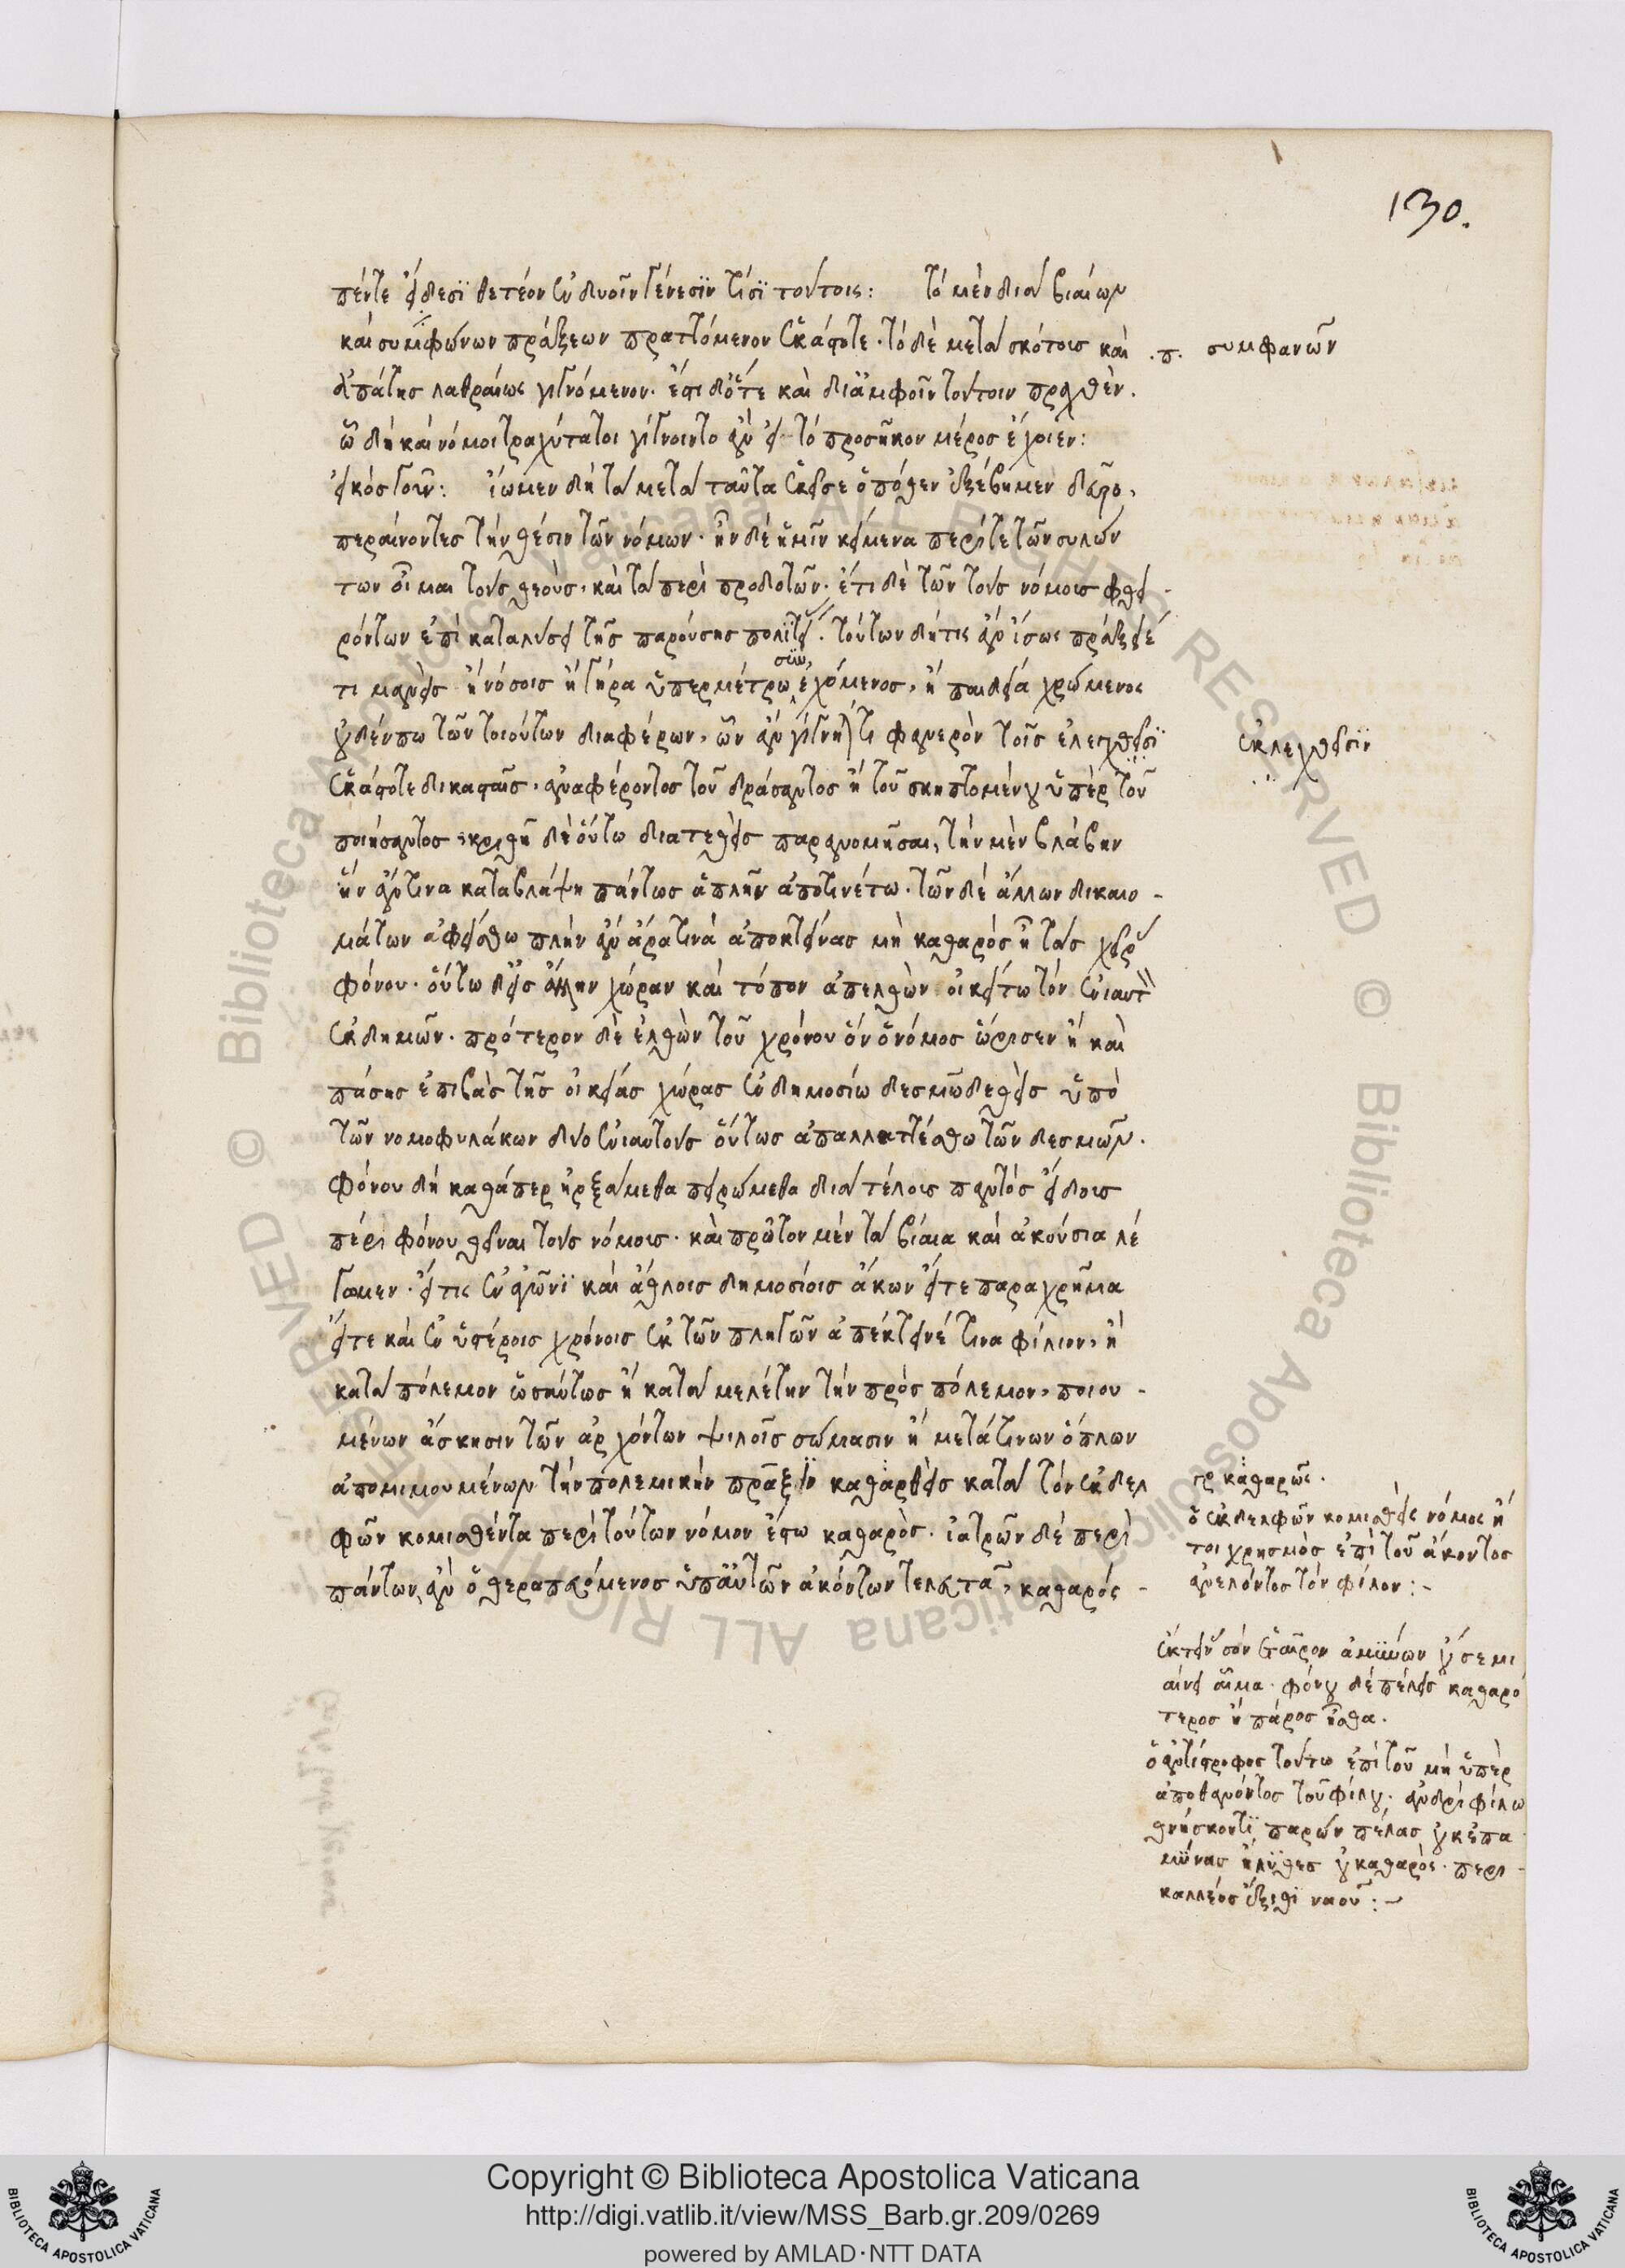 130.
πέντε εἴδεσϊ θετέον ἐν δυοῖν γένεσϊν τίσϊ τούτοις: τὸ μὲν διὰ βιαίων
καὶ συμφώνων πράξεων πραττόμενον ἑκάστοτε· τὸ δὲ μετὰ σκότους καὶ
ἀπάτης λαθραίως γιγνόμενον· ἔστι δ' ὅτε καὶ δι' ἀμφοῖν τούτοιν πραχθὲν·
ᾧ δὴ καὶ νόμοι τραχύτατοι γίγνοιντο ἂν εἰ τὸ προσῆκον μέρος ἔχοιεν:
εἰκός γοῦν: ἴωμεν δὴ τὰ μετὰ ταῦτα ἐκεῖσε ὁπόθεν ἐξέβημεν δεῦρο,
περαίνοντες τὴν θέσιν τῶν νόμων· ἦν δὲ ἡμῖν κείμενα περί τε τῶν συλών
των οἶμαι τοὺς θεοὺς, καὶ τὰ περὶ προδοτῶν· ἔτι δὲ τῶν τοὺς νόμους φθει-
ρόντων ἐπὶ καταλύσει τῆς παρούσης πολιτεί· τούτων δή τις ἂν ἴσως πράξειέ
τι μανεὶς ἢ νόσοις ἢ γήρα ὑπερμέτρω συνεχόμενος, ἢ παιδεία χρώμενος
οὐδέν πω τῶν τοιούτων διαφέρων, ὧν ἂν γίγνηταί τι φανερὸν τοῖς ἐλεγχθεῖσϊ
ἑκάστοτε δικασταῖς, ἀναφέροντος τοῦ δράσαντος ἢ τοῦ σκηπτομένου ὑπὲρ τοῦ
ποιήσαντος, κριθῆ δὲ οὕτω διατεθεὶς παρανομῆσαι, τὴν μὲν βλάβην
ἣν ἄν τινα καταβλάψη πάντως ἁπλῆν ἀποτινέτω· τῶν δὲ ἄλλων δικαιο-
μάτων ἀφείσθω πλὴν ἂν ἄρα τινά ἀποκτείνας μὴ καθαρός ᾖ τὰς χεῖρ
φόνου· οὕτω δ' εἰς ἄλλην χώραν καὶ τόπον ἀπελθὼν οἰκείτω τὸν ἐνιαυτ
ἐκδημῶν· πρότερον δὲ ἐλθὼν τοῦ χρόνου ὃν ὁ νόμος ὥρισεν ἢ καὶ
πάσης ἐπιβὰς τῆς οἰκείας χώρας ἐν δημοσίω δεσμῶ δεθεὶς ὑπὸ
τῶν νομοφυλάκων δύο ἐνιαυτοὺς οὕτως ἀπαλλαττέσθω τῶν δεσμῶν·
φόνου δὴ καθάπερ ἠρξάμεθα πειρώμεθα διὰ τέλους παντὸς εἴδους
πέρι φόνου θεῖναι τοὺς νόμους· καὶ πρῶτον μὲν τὰ βίαια καὶ ἀκούσια λέ
γωμεν· εἴ τις ἐν ἀγῶνϊ καὶ ἄθλοις δημοσίοις ἄκων εἴτε παραχρῆμα
εἴτε καὶ ἐν ὑστέροις χρόνοις ἐκ τῶν πληγῶν ἀπέκτεινέ τινα φίλιον, ἢ
κατὰ πόλεμον ὡσαύτως ἢ κατὰ μελέτην τὴν πρὸς πόλεμον, ποιου-
μένων ἄσκησιν τῶν ἀρχόντων ψιλοῖς σώμασιν ἢ μετά τινων ὅπλων
ἀπομιμουμένων τὴν πολεμικὴν πρᾶξιν καθαρθεὶς κατὰ τὸν ἐκ δελ
φῶν κομισθέντα περὶ τούτων νόμον ἔστω καθαρὸς· ἰατρῶν δὲ περὶ
πάντων, ἂν ὁ θεραπευόμενος ὑπ' αὐτῶν ἀκόντων τελευτᾶ, καθαρός-
·π· συμφανῶν
ἐκλεχθεῖσϊν
γρ καθαρῶς·
ὁ ἐκ δελφῶν κομισθεὶς νόμος ἤ
τοι χρησμὸς ἐπὶ τοῦ ἄκοντος
ἀνελόντος τὸν φίλον:-
ἔκτεινας σὸν ἑταῖρον ἀμύνων οὔ σε μι
αίνει αἷμα· φόνου δὲ πέλεις καθαρό
τερος ἢ πάρος ἦσθα·
ὁ ἀντίστροφος τούτω ἐπὶ τοῦ μὴ ὑπὲρ
ἀποθανόντος τοῦ φίλου· ἀνδρὶ φίλω
θνήσκοντϊ παρὼν πέλας οὐκ ἐπα
μύνας ἤλυθες οὐ καθαρός· περι-
καλλέος ἔξιθι ναοῦ:-
Copyright © Biblioteca Apostolica Vaticana
http://digi.vatlib.it/view/MSS_Barb.gr.209/0269
powered by AMLAD·NTT DATA